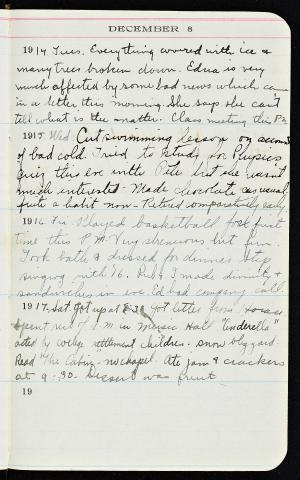 DECEMBER 8
1914 Tues. Everything covered with ice &
many trees broken down. Edna is very
much affected by some bad news which came
in a letter this morning. She says she can't
tell what is the matter. Class meeting this P.M.
1915 Wed. Cut swimming lesson on account
of bad cold. Tried to study for Physics
Quiz this eve with Pete but she wasn't
much interested. Made chocolate as usual,
quite a habit now. Retired comparatively early.
1916 Fri. Played basketball for first
time this P.M. Very strenuous but fun.
Took bath & dressed for dinner. Step
singing with '16. I made divinity &
sandwiches in eve. Ed had company call.
1917 Sat. Got up at 8:30. Got letter from
Spent rest of A.M. in Music Hall "Cinderella"
acted by college settlement children. Snow blizzard.
Read "The Cabin". No chapel. Ate jam & crackers
at 9:30. Dessert was fruit
19